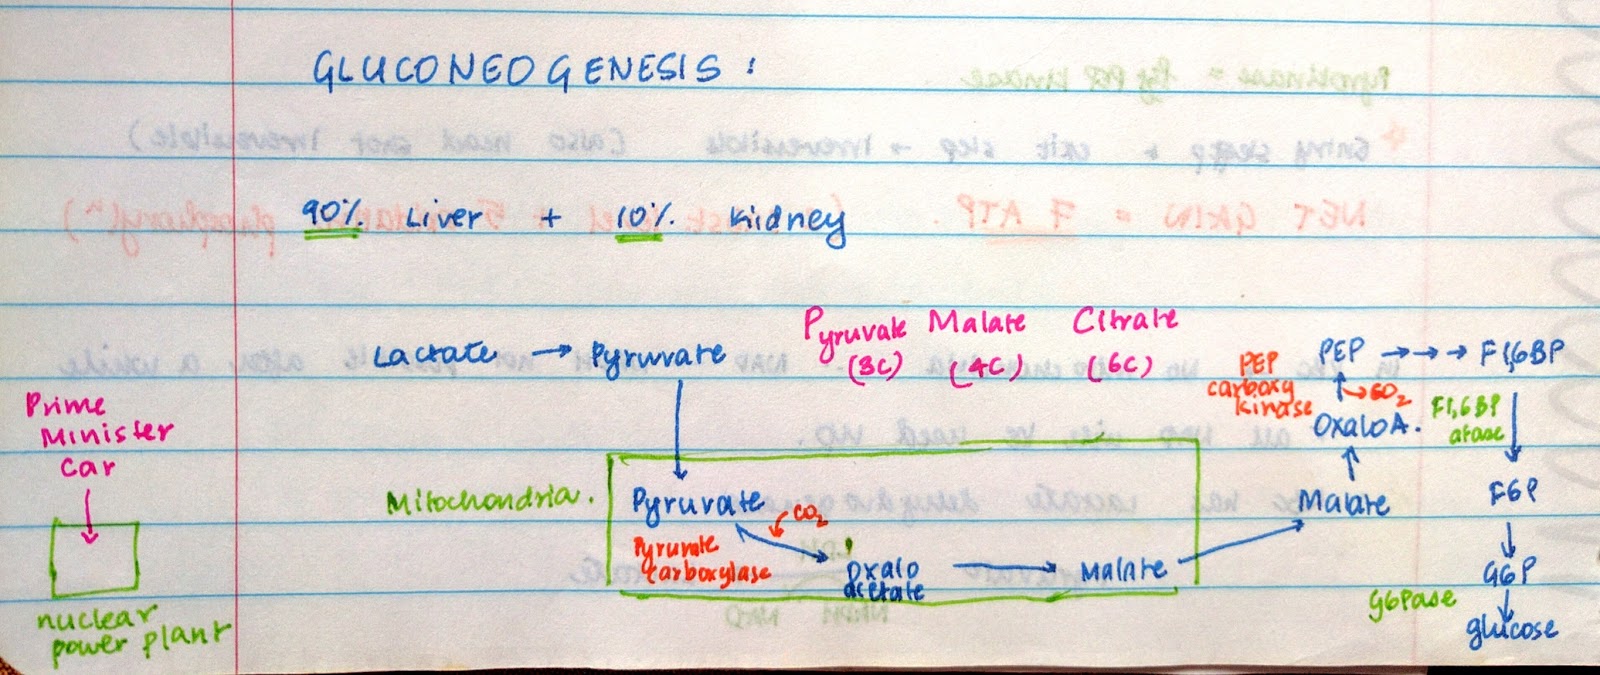 GLUCONEOGENESIS:
90% Liver + 10% Kidney
Pyruvate Malate Citrate
(3C) (4C) (6C)
Lactate → Pyruvate
Prime
Minister
Car
nuclear
power plant
Mitochondria.
Pyruvate
CO2
Pyruvate
carboxylase
Oxalo
acetate
→ Malate
Malate
OxaloA.
PEP
carboxy
kinase
CO2
PEP →→→ F1,6BP
F1,6BP
atase
F6P
G6P
G6Pase
glucose
NET GAIN = 7 ATP.